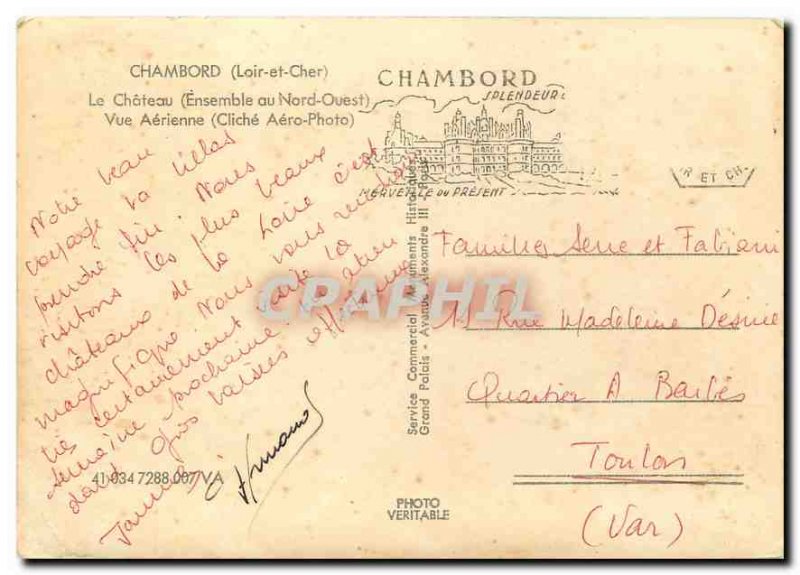 CHAMBORD (Loir-et-Cher)
Le Château (Ensemble au Nord-Ouest)
Vue Aérienne (Cliché Aéro-Photo)
CHAMBORD
SPLENDEUR
MERVEILLE DU PRÉSENT
R ET CH
Notre beau
voyage va hélas
prendre fin. Nous
visitons les plus beaux
châteaux de la Loire c'est
magnifique. Nous vous
certainement la
semaine prochaine.
dant gros baisers
Service Commercial Monuments Historiques
Grand Palais - Avenue Alexandre III - Paris
Familles Serre et Fabiani
11 Rue Madeleine Désirée
Quartier A Barbès
Toulon
(Var)
41) 034 7288 007/VA
PHOTO
VERITABLE
CPAPHIL